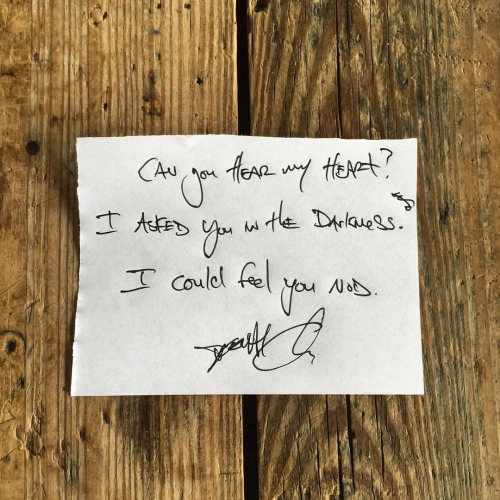 Can you Hear my Heart?
I Asked you in the Darkness.
I could feel you Nod.